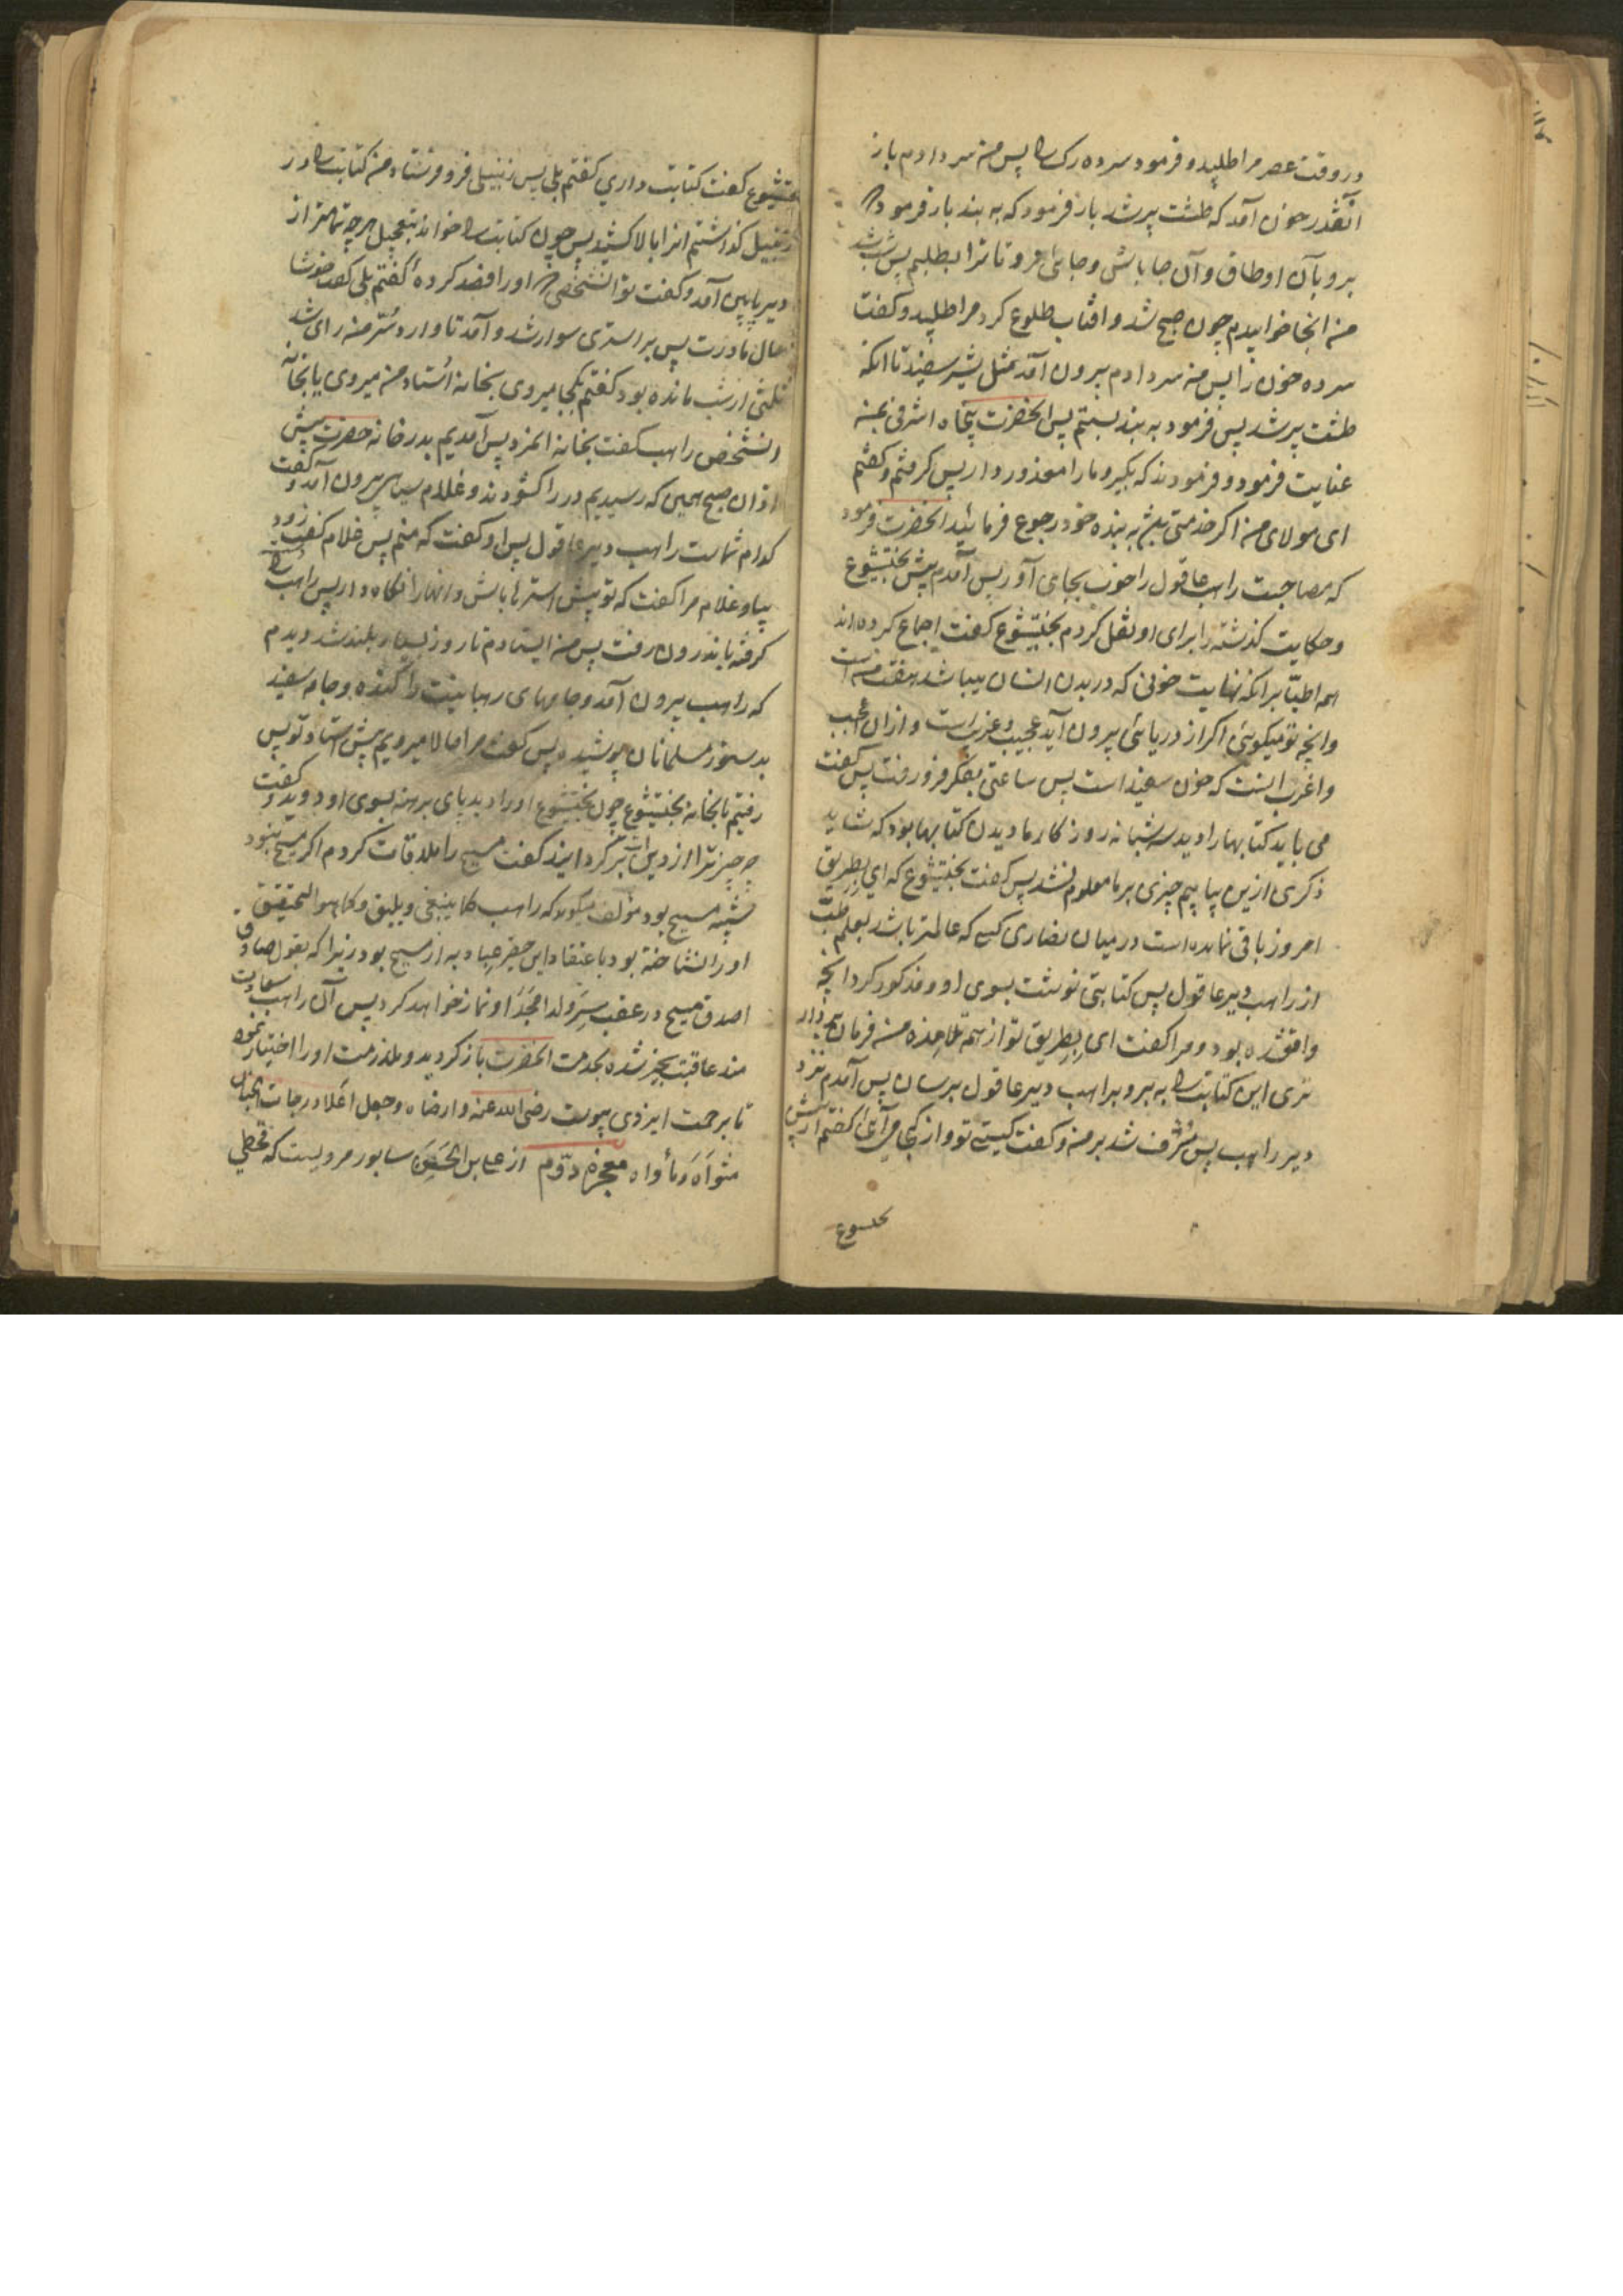 در وقت عصر مرا طلبید و فرمود سر ده رک را پس من سر دادم باز
آنقدر خون آمد که طشت پر شد باز فرمود که به بند باز فرمود
برو بآن اوطاق و آن جا باش و جایی مرو تا ترا بطلبم پس شب شد
من انجا خوابیدم چون صبح شد و افتاب طلوع کرد مرا طلبید و کفت
سر ده خون را پس من سر دادم بیرون آمد مثل شیر سفید تا انکه
طشت پر شد پس فرمود به بند بستم پس انحضرت پنجاه اشرفی بمن
عنایت فرمود و فرمودند که بکیر و ما را معذور دار پس کرفتم و کفتم
ای مولای من اکر خدمتی باشد به بنده خود رجوع فرمائید انحضرت فرمود
که مصاحبت راهب عاقول را خوب بجای آور پس آمدم پیش بختیشوع
و حکایت کذشته را برای او نقل کردم بختیشوع کفت اجماع کرده اند
همه اطبّا برانکه نهایت خونی که در بدن انسان میباشد هفت من است
و انچه تو میکوئی اکر از دریائی بیرون آید عجیب و غریب است و از ان اعجب
و اغرب اینست که خون سفید است پس ساعتی بفکر فرو رفت پس کفت
می باید کتابها را دید سه شبانه روز کار ما دیدن کتابها بود که شاید
ذکری ازین بیابیم چیزی بر ما معلوم نشد پس کفت بختیشوع که ای بطریق
امروز باقی نمانده است در میان نصاری کسی که عالمتر باشد بعلم طب
از راهب دیر عاقول پس کتابتی نوشت بسوی او و مذکور کرد انچه
واقع شده بود و مرا کفت ای بطریق تو از همه تلامذه من فرمان بردار
تری این کتابت را به بر و براهب دیر عاقول برسان پس آمدم نزد
دیر راهب پس مُشرف شد بر من و کفت کیستی تو و از کجا می آئی کفتم از پیش
بختیشوع
بختیشوع کفت کتابت داری کفتم بلی پس زنبیلی فرو فرستاد من کتابت را در
زنبیل کذاشتم انرا بالا کشید پس چون کتابت را خواند بتعجیل هر چه تمامتر از
دیر پایین آمد و کفت تو انشخصی اورا فصد کرده کفتم بلی کفت خوشا
حال مادرت پس بر استری سوار شد و آمد تا وارد سُرّ من رای شد
ثلثی از شب مانده بود کفتم بکجا میروی بخانه اُستاد من میروی یا بخانه
انشخص راهب کفت بخانه انمرد پس آمدیم بدر خانه حضرت پیش
اذان صبح همین که رسیدیم در را کشودند و غلام سیاهی بیرون آمد و کفت
کدام شماست راهب دیر عاقول پس او کفت که منم پس غلام کفت زود
بیا و غلام مرا کفت که تو پیش استرها باش و انها را نکاه دار پس راهب را
کرفته باندرون رفت پس من ایستادم تا روز بسیار بلند شد دیدم
که راهب بیرون آمد و جامهای رهبانیت را کنده و جامه سفید
بدستور مسلمانان پوشیده پس کفت مرا حالا میرویم پیش استاد تو پس
رفتیم تا بخانه بختیشوع چون بختیشوع او را دید پای برهنه بسوی او دوید و کفت
چه چیز ترا از دینت برکردانید کفت مسیح را ملاقات کردم اکر مسیح نبود
شبیه مسیح بود مؤلف میکوید که راهب کما ینبغی و یلیق و کما هو التحقیق
اورا نشناخته بود باعتقاد این حقیر عباد به از مسیح بود زیرا که بقول صادق
اصدق مسیح در عقب سر ولد امجد او نماز خواهد کرد پس آن راهب سعادت
مند عاقبت بخیر شده بخدمت انحضرت باز کردید و ملازمت او را اختیار نمود
تا برحمت ایزدی پیوست رضی الله عنه و ارضاه و جعل اعلا درجات الجنان
مثواه و مأواه معجزه دوّم از علی بن الحسن سابور مرویست که قحطی